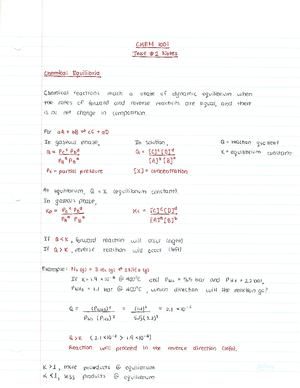 CHEM 1001
Test #2 Notes
Chemical Equilibria
Chemical reactions reach a state of dynamic equilibrium when
the rates of forward and reverse reactions are equal and there
is no net change in composition.
For aA + bB ⇌ cC + dD
In gaseous phase, In solution, Q = reaction quotient
Q = Pc^c PD^d / PA^a PB^b Q = [C]^c [D]^d / [A]^a [B]^b K = equilibrium constant
P = partial pressure [X] = concentration
At equilibrium, Q = K (equilibrium constant)
In gaseous phase,
Kp = Pc^c PD^d / PA^a PB^b Kc = [C]^c [D]^d / [A]^a [B]^b
If Q < K, forward reaction will occur (right)
If Q > K, reverse reaction will occur (left)
Example: N2 (g) + 3 H2 (g) ⇌ 2 NH3 (g)
If K = 1.9 × 10^-4 @ 400°C and PN2 = 5.5 bar and PH2 = 2.2 bar,
PNH3 = 1.1 bar @ 400°C, which direction will the reaction go?
Q = (PNH3)^2 / PN2 (PH2)^3 = (1.1)^2 / 5.5(2.2)^3 = 2.1 × 10^-2
Q > K (2.1 × 10^-2 > 1.9 × 10^-4)
Reaction will proceed in the reverse direction (left).
K > 1, more products @ equilibrium
K < 1, less products @ equilibrium